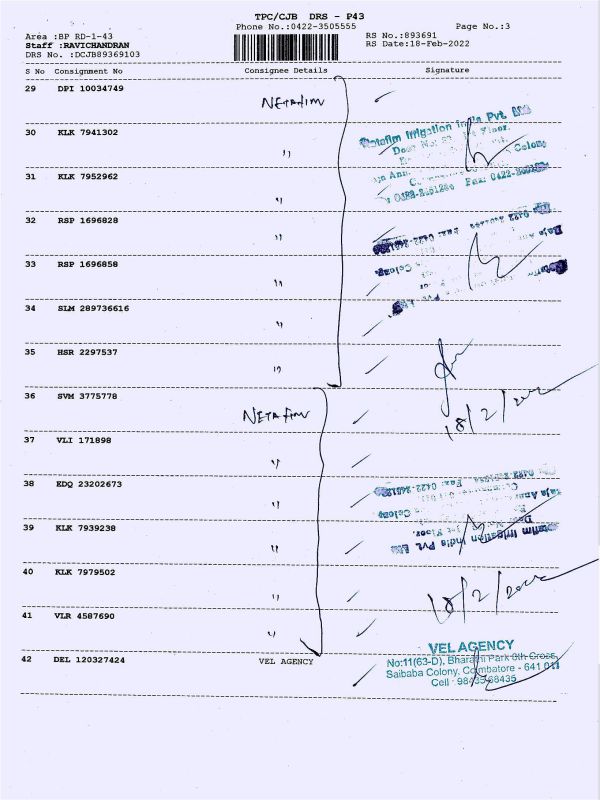 TPC/CJB DRS - P43
Phone No.:0422-3505555
Page No.:3
Area :BP RD-1-43
RS No.:893691
Staff :RAVICHANDRAN
RS Date:18-Feb-2022
DRS No. :DCJB89369103
S No Consignment No Consignee Details Signature
29 DPI 10034749 NETAfim
30 KLK 7941302 "
Netafim Irrigation India Pvt. Ltd
31 KLK 7952962 "
32 RSP 1696828 "
33 RSP 1696858 "
34 SLM 289736616 "
35 HSR 2297537 "
36 SVM 3775778 NETAfim
18/2/2022
37 VLI 171898 "
38 EDQ 23202673 "
39 KLK 7939238 "
Netafim Irrigation India Pvt. Ltd
40 KLK 7979502 "
18/2/2022
41 VLR 4587690 "
42 DEL 120327424 VEL AGENCY
VEL AGENCY
No:11(63-D), Bharathi Park 6th Cross,
Saibaba Colony, Coimbatore - 641 011
Cell : 98433 68435